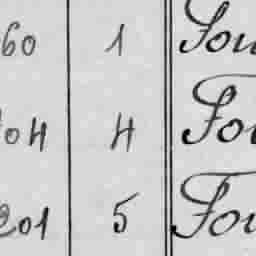 60 1 Fou
04 4 Fou
201 5 Fou